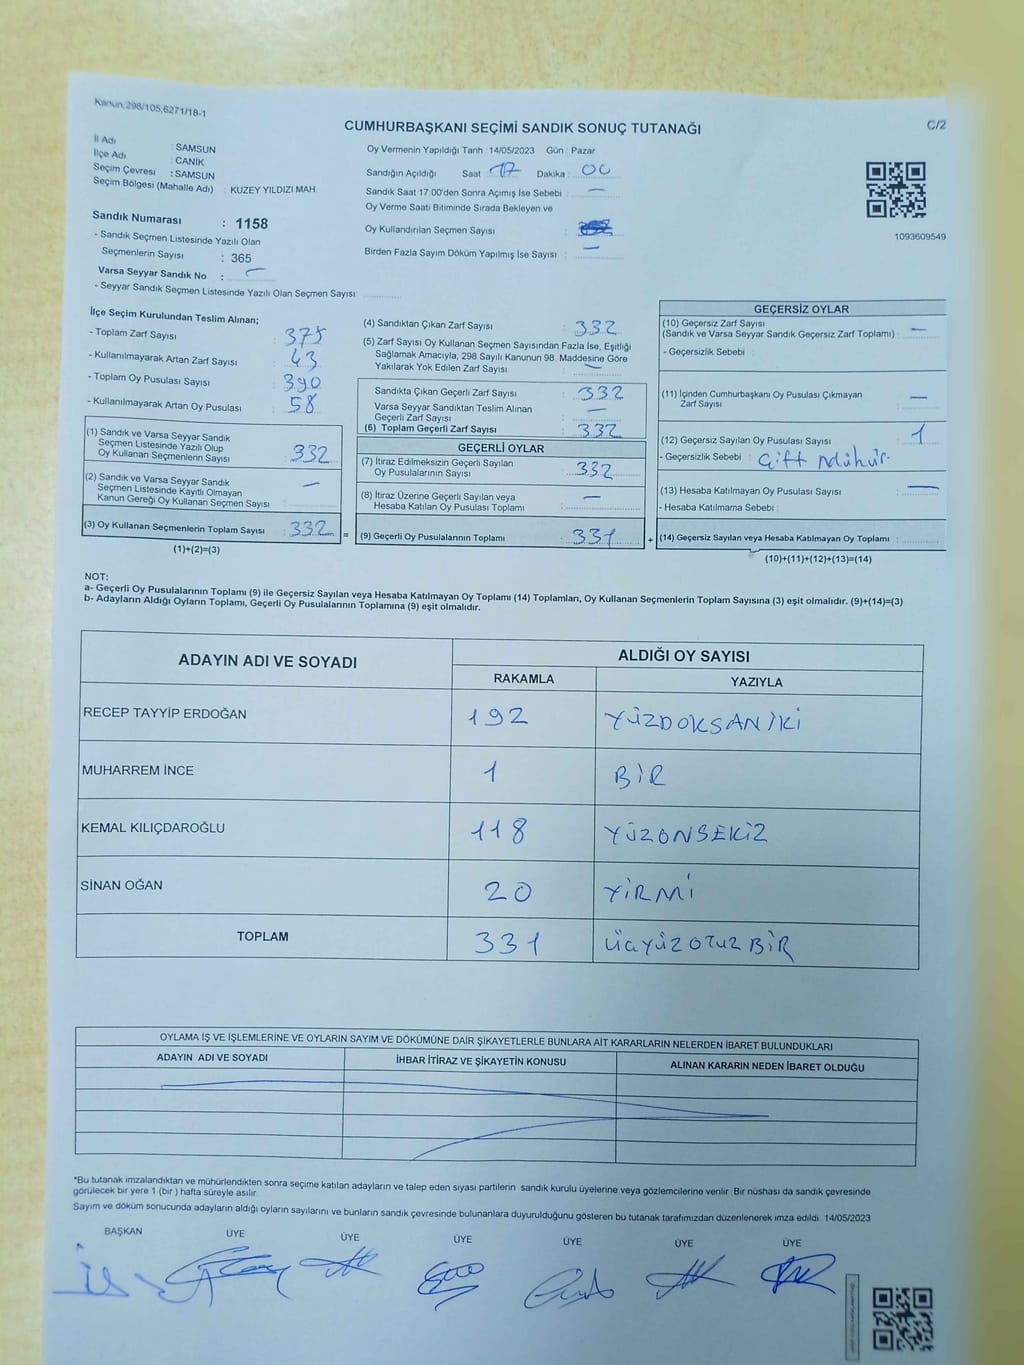 Kanun:298/105,6271/18-1
C/2
CUMHURBAŞKANI SEÇİMİ SANDIK SONUÇ TUTANAĞI
İl Adı : SAMSUN
İlçe Adı : CANİK
Seçim Çevresi : SAMSUN
Seçim Bölgesi (Mahalle Adı) : KUZEY YILDIZI MAH.
Oy Vermenin Yapıldığı Tarih : 14/05/2023 Gün : Pazar
Sandığın Açıldığı Saat : 17 Dakika : 00
Sandık Saat 17:00'den Sonra Açımış İse Sebebi : —
Oy Verme Saati Bitiminde Sırada Bekleyen ve
Oy Kullandırılan Seçmen Sayısı :
Birden Fazla Sayım Döküm Yapılmış İse Sayısı : —
1093609549
Sandık Numarası : 1158
- Sandık Seçmen Listesinde Yazılı Olan
Seçmenlerin Sayısı : 365
Varsa Seyyar Sandık No : —
- Seyyar Sandık Seçmen Listesinde Yazılı Olan Seçmen Sayısı:
İlçe Seçim Kurulundan Teslim Alınan;
- Toplam Zarf Sayısı : 375
- Kullanılmayarak Artan Zarf Sayısı : 43
- Toplam Oy Pusulası Sayısı : 390
- Kullanılmayarak Artan Oy Pusulası : 58
(1) Sandık ve Varsa Seyyar Sandık
Seçmen Listesinde Yazılı Olup
Oy Kullanan Seçmenlerin Sayısı : 332
(2) Sandık ve Varsa Seyyar Sandık
Seçmen Listesinde Kayıtlı Olmayan
Kanun Gereği Oy Kullanan Seçmen Sayısı : —
(3) Oy Kullanan Seçmenlerin Toplam Sayısı : 332 =
(1)+(2)=(3)
(4) Sandıktan Çıkan Zarf Sayısı : 332
(5) Zarf Sayısı Oy Kullanan Seçmen Sayısından Fazla İse, Eşitliği
Sağlamak Amacıyla, 298 Sayılı Kanunun 98. Maddesine Göre
Yakılarak Yok Edilen Zarf Sayısı : —
Sandıkta Çıkan Geçerli Zarf Sayısı : 332
Varsa Seyyar Sandıktan Teslim Alınan
Geçerli Zarf Sayısı : —
(6) Toplam Geçerli Zarf Sayısı : 332
GEÇERLİ OYLAR
(7) İtiraz Edilmeksizin Geçerli Sayılan
Oy Pusulalarının Sayısı : 332
(8) İtiraz Üzerine Geçerli Sayılan veya
Hesaba Katılan Oy Pusulası Toplamı : —
(9) Geçerli Oy Pusulalarının Toplamı : 331 +
GEÇERSİZ OYLAR
(10) Geçersiz Zarf Sayısı
(Sandık ve Varsa Seyyar Sandık Geçersiz Zarf Toplamı) : —
- Geçersizlik Sebebi :
(11) İçinden Cumhurbaşkanı Oy Pusulası Çıkmayan
Zarf Sayısı : —
(12) Geçersiz Sayılan Oy Pusulası Sayısı : 1
- Geçersizlik Sebebi : Çift mühür.
(13) Hesaba Katılmayan Oy Pusulası Sayısı : —
- Hesaba Katılmama Sebebi :
(14) Geçersiz Sayılan veya Hesaba Katılmayan Oy Toplamı :
(10)+(11)+(12)+(13)=(14)
NOT:
a- Geçerli Oy Pusulalarının Toplamı (9) ile Geçersiz Sayılan veya Hesaba Katılmayan Oy Toplamı (14) Toplamları, Oy Kullanan Seçmenlerin Toplam Sayısına (3) eşit olmalıdır. (9)+(14)=(3)
b- Adayların Aldığı Oyların Toplamı, Geçerli Oy Pusulalarının Toplamına (9) eşit olmalıdır.
ADAYIN ADI VE SOYADI
ALDIĞI OY SAYISI
RAKAMLA YAZIYLA
RECEP TAYYİP ERDOĞAN 192 YÜZDOKSANİKİ
MUHARREM İNCE 1 BİR
KEMAL KILIÇDAROĞLU 118 YÜZONSEKİZ
SİNAN OĞAN 20 YİRMİ
TOPLAM 331 ÜÇYÜZOTUZBİR
OYLAMA İŞ VE İŞLEMLERİNE VE OYLARIN SAYIM VE DÖKÜMÜNE DAİR ŞİKAYETLERLE BUNLARA AİT KARARLARIN NELERDEN İBARET BULUNDUKLARI
ADAYIN ADI VE SOYADI İHBAR İTİRAZ VE ŞİKAYETİN KONUSU ALINAN KARARIN NEDEN İBARET OLDUĞU
*Bu tutanak imzalandıktan ve mühürlendikten sonra seçime katılan adayların ve talep eden siyasi partilerin sandık kurulu üyelerine veya gözlemcilerine verilir. Bir nüshası da sandık çevresinde
görülecek bir yere 1 (bir ) hafta süreyle asılır.
Sayım ve döküm sonucunda adayların aldığı oyların sayılarını ve bunların sandık çevresinde bulunanlara duyurulduğunu gösteren bu tutanak tarafımızdan düzenlenerek imza edildi. 14/05/2023
BAŞKAN ÜYE ÜYE ÜYE ÜYE ÜYE ÜYE